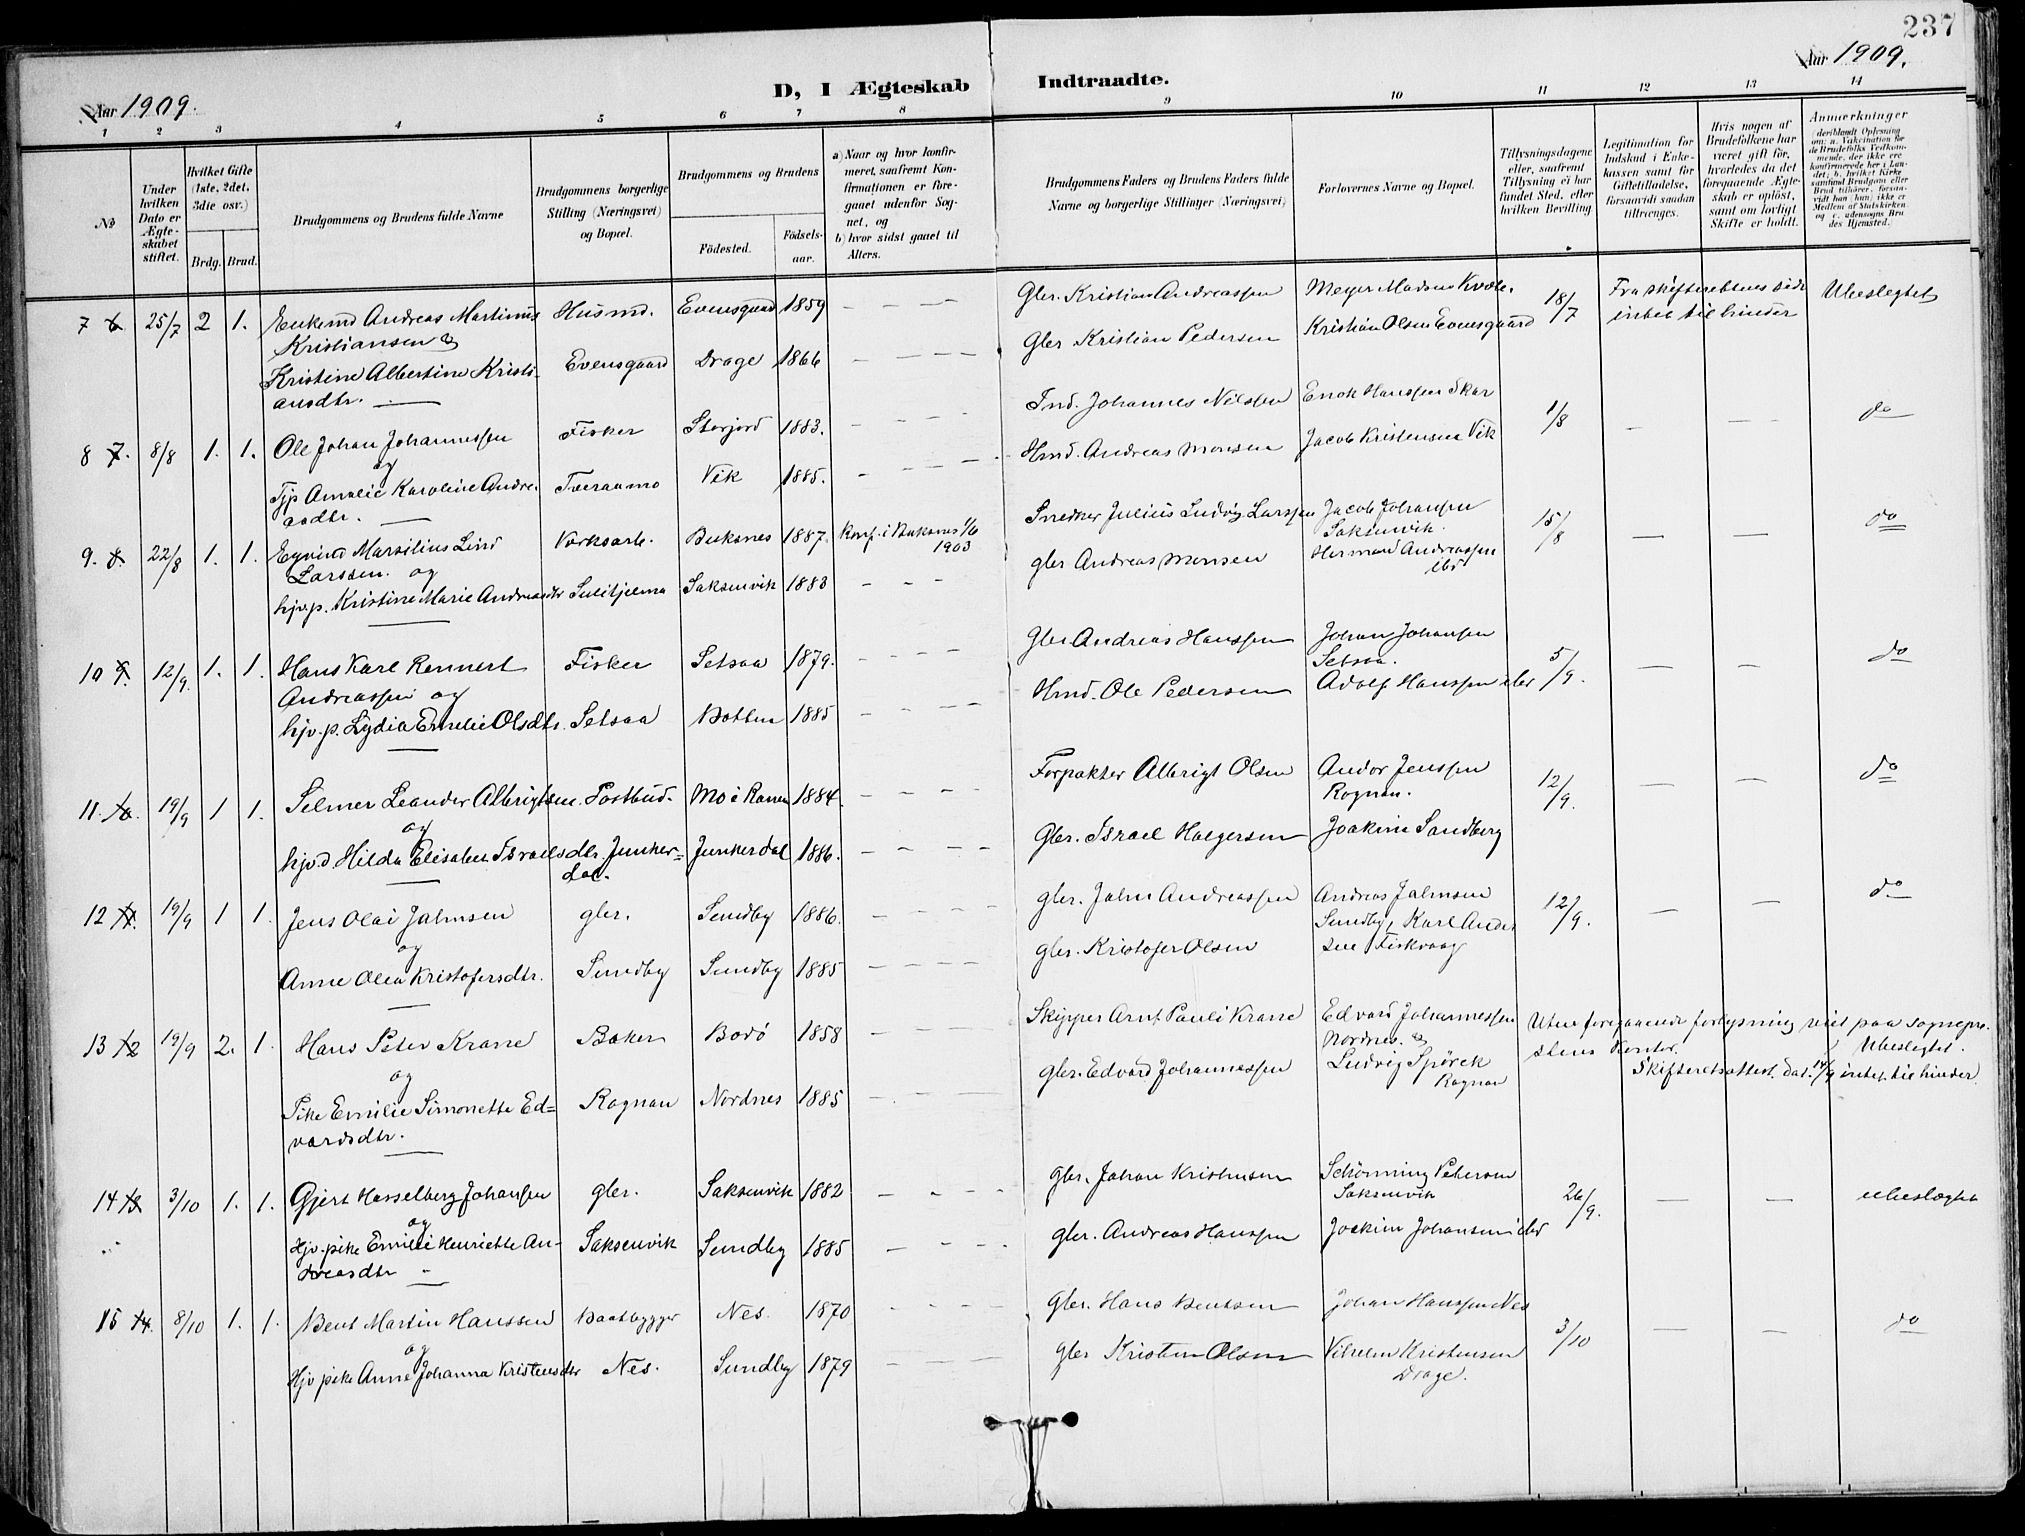 237
Aar 1909.
D, I Ægteskab Indtraadte.
Aar 1909.
1 2 3 4 5 6 7 8 9 10 11 12 13 14
No
Under hvilken Dato er Ægteskabet stiftet.
Hvilket Gifte (1ste, 2det, 3dte osv.)
Brdg. Brud.
Brudgommens og Brudens fulde Navne
Brudgommens borgerlige Stilling (Næringsvei) og Bopæl.
Brudgommens og Brudens
Födested.
Födselsaar.
a) Naar og hvor konfirmeret, saafremt Konfirmationen er foregaaet udenfor Sognet, og
b) hvor sidst gaaet til Alters.
Brudgommens Faders og Brudens Faders fulde Navne og borgerlige Stillinger (Næringsvei)
Forlovernes Navne og Bopæl.
Tillysningsdagene eller, saafremt Tillysning ei har fundet Sted, efter hvilken Bevilling.
Legitimation for Indskud i Enkekassen samt for Giftetilladelse, forsaavidt saadan tiltrænges.
Hvis nogen af Brudefolkene har været gift før, hvorledes da det foregaaende Ægteskab er oplöst, samt om lovligt Skifte er holdt.
Anmærkninger
(deriblandt Oplysning om: a. Vaccination for de Brudefolks Vedkommende, der ikke ere konfirmerede her i Landet; b. hvilket Kirkesamfund Brudgom eller Brud tilhører, forsaavidt han (hun) ikke er Medlem af Statskirken, og c. udensogns Brudes Hjemsted.
7 6 25/7 2 1. Enkemd Andreas Martinus Husmd. Evensgaard 1859 — — — Gbr. Kristian Andreassen Meyer Madsen Kvæle, 18/7 Fra skifterettens side Ubeslegtet
Kristiansen og Kristian Olsen Evensgaard intet til hinder
Kristine Albertine Kristi- Evensgaard Drage 1866 — — — Gbr Kristian Pedersen
ansdtr.
8 7. 8/8 1. 1. Ole Johan Johannessen Fisker Storjord 1883. — — — Ind. Johannes Nilssen Enok Hanssen Skar 1/8 — — do
og
Pp Amalie Karoline Andre- Tveraamo Vik 1885. — — — Hmd. Andreas Monsen Jacob Kristensen Vik
asdtr.
9. 8. 22/8 1. 1. Eyvind Marsilius Lind Verksarb. Buksnes 1887 Konf. i Buksnes 1/6 Snedker Julius Ludvig Larssen Jacob Johansen 15/8 — — do
Larssen. og 1903 Saksenvik.
hjv.p. Kristine Marie Andreasdtr Sulitjelma Saksenvik 1883 — — — gbr Andreas Monsen Herman Andreassen ibd
10 9. 12/9. 1. 1. Hans Karl Rennert Fisker Setsaa 1879. — — — Gbr Andreas Hanssen Johan Johansen 5/9. — — do
Andreassen og Setsaa.
hjv.p. Lydia Emelie Olsdtr. Setsaa Botten 1885 — — — Hmd. Ole Pedersen Adolf Hanssen ibd
11. 10. 19/9 1 1. Selmer Leander Albrigtsen. Postbud. Mo i Ranen 1884. — — — Forpakter Albrigt Olsen Andor Jenssen 12/9. — — do
og Rognan.
hjv.d Hilda Elisabet Israelsdtr. Junker- Junkerdal 1886. — — — Gbr. Israel Holgersen Joakim Sandberg
dal.
12 11. 19/9 1 1. Jens Olai Jalmsen gbr. Sundby 1886. — — — gbr. Jalm Andreassen Andreas Jalmsen 12/9. — — do
og Sundby, Karl Ander
Anne Olea Kristofersdtr. Sundby Sundby 1885 — — — gbr. Kristofer Olsen sen Fiskvaag
13 12 19/9 2. 1. Hans Peter Krane Baker Bodö 1858 — — — Skipper Arnt Pauli Krane Edvard Johannessen Uten foregaaende forlysning viet paa sognepre-
og Nordnes. og stens Kontor. Ubeslegtet.
Pike Emilie Simonette Ed- Rognan Nordnes 1885 — — — gbr. Edvard Johannessen Ludvig Spörck Skifteretsattest. dat. 14/9 intet til hinder
vardsdtr. Rognan
14 13 3/10 1. 1. Gjert Hasselberg Johansen gbr. Saksenvik 1882 — — — gbr. Johan Kristensen Schönning Petersen 26/9. — — ubeslægtet
og Saksenvik
Hjv. pike Emilie Henriette An- Saksenvik Sundby 1885 — — — gbr. Andreas Hanssen Joakim Johansen ibd
dreasdtr
15 14. 8/10 1. 1. Bent Martin Hanssen Baatbygger Nes. 1870 — — — gbr. Hans Bentsen Johan Hanssen Nes 3/10 — — do
og
Hjv pike Anne Johanna Kristensdtr Nes. Sundby 1879 — — — gbr Kristen Olsen Vilhelm Kristensen
Drage.